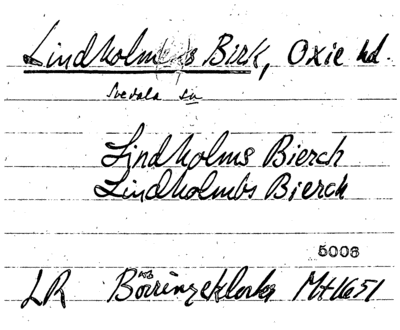 Lindholms Birk, Oxie hd.
Svedala sn
Lindholms Bierch
Lindholmbs Bierch
5006
LR Börringekloster Mt 1651